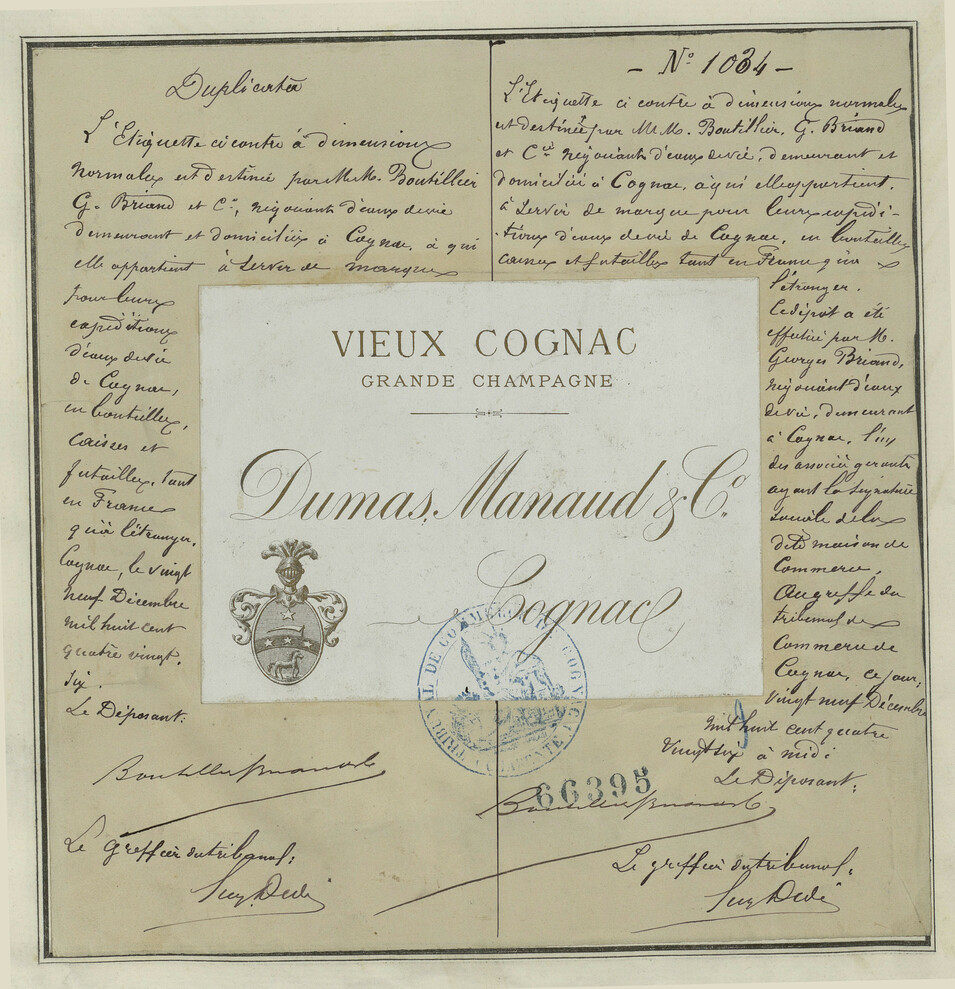 Duplicata
L'Etiquette ci contre à dimensions
normales est destinée par M.M. Boutillier
G. Briand et Cie, négociants d'eaux de vie
demeurant et domiciliés à Cognac, à qui
elle appartient à servir de marque
pour leurs
expéditions
d'eaux de vie
de Cognac,
en bouteilles,
caisses et
futailles, tant
en France
qu'à l'étranger.
Cognac, le vingt
neuf Décembre
mil huit cent
quatre vingt.
six.
Le Déposant:
Le greffier du tribunal:
- No 1034 -
L'Etiquette ci contre à dimensions normales
est destinée par M.M. Boutillier, G. Briand
et Cie négociants d'eaux de vie, demeurant et
domiciliés à Cognac, à qui elle appartient,
à servir de marque pour leurs expédi-
-tions d'eaux de vie de Cognac, en bouteilles
caisses et futailles tant en France qu'à
l'étranger.
Le dépôt a été
effectué par M.
Georges Briand,
négociant d'eaux
de vie, demeurant
à Cognac, l'un
des associés gérants
ayant la signature
sociale de la
dite maison de
Commerce,
Au greffe du
tribunal de
Commerce de
Cognac, ce jour;
vingt neuf Décembre
mil huit cent quatre
vingt six à midi
Le Déposant:
Le greffier du tribunal:
VIEUX COGNAC
GRANDE CHAMPAGNE
Dumas, Manaud & Co.
Cognac
TRIBUNAL DE COMMERCE DE COGNAC
CHARENTE
66395